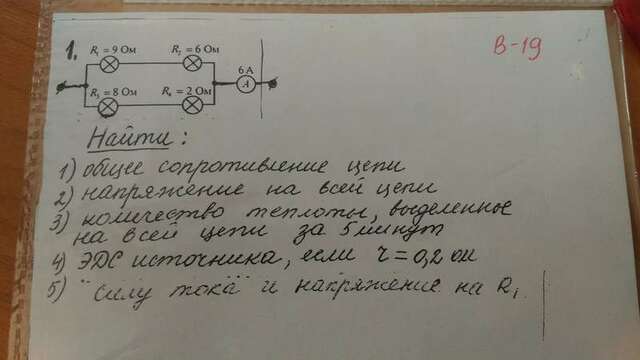 1.
R₁ = 9 Ом R₂ = 6 Ом
6 А
А
R₃ = 8 Ом R₄ = 2 Ом
В-19
Найти:
1) общее сопротивление цепи
2) напряжение на всей цепи
3) количество теплоты, выделенное
на всей цепи за 5 минут
4) ЭДС источника, если r = 0,2 ом
5) силу тока и напряжение на R₁